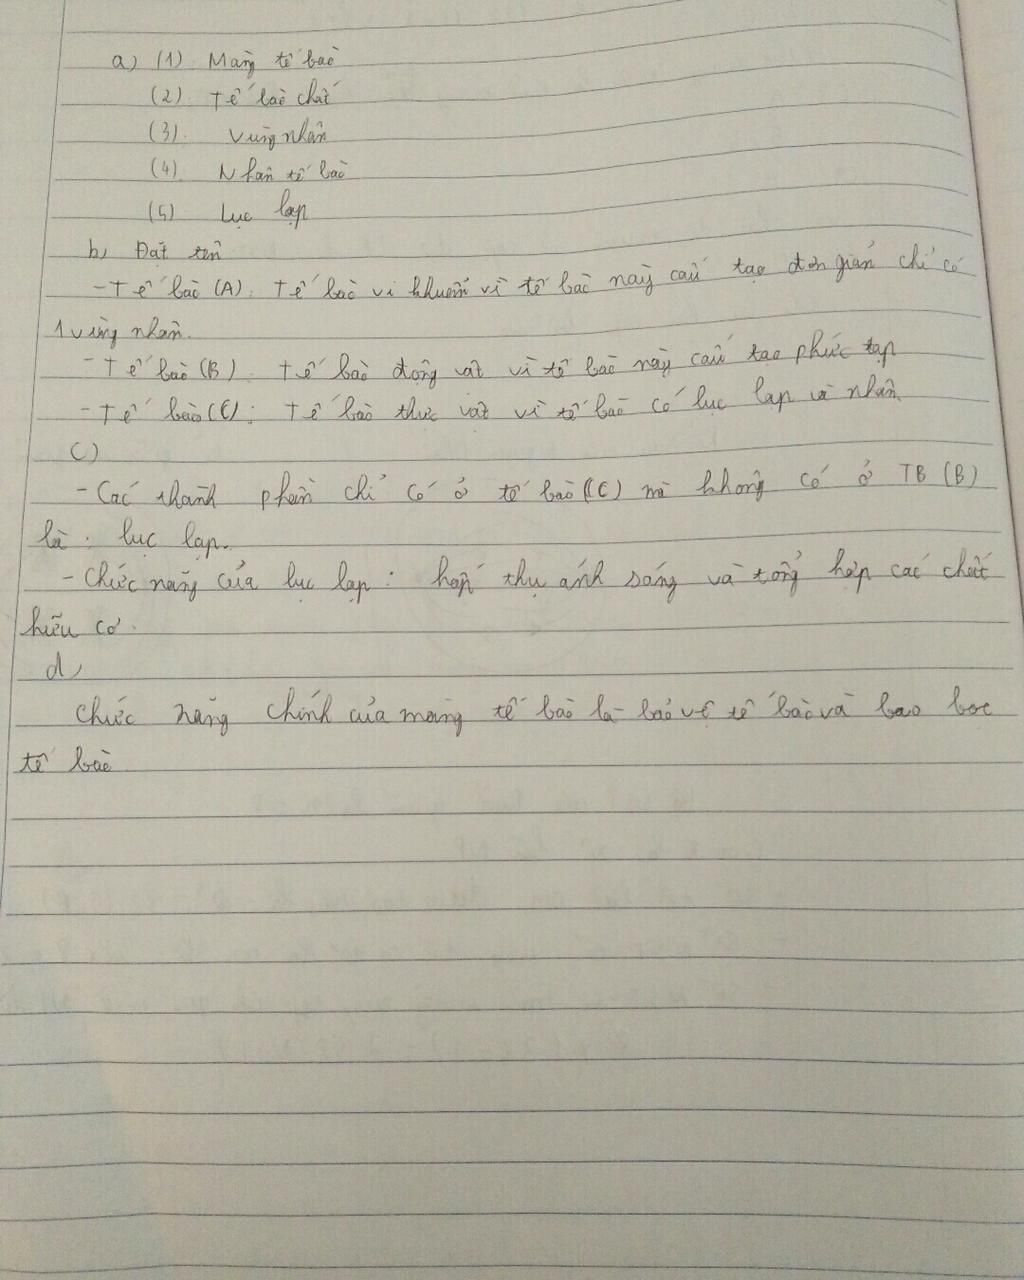 a) (1) Màng tế bào
(2). Tế bào chất
(3). Vùng nhân
(4). Nhân tế bào
(5) Lục lạp
b, Đặt tên
- Tế bào (A). Tế bào vi khuẩn vì tế bào này cấu tạo đơn giản chỉ có
1 vùng nhân.
- Tế bào (B). Tế bào động vật vì tế bào này cấu tạo phức tạp
- Tế bào (C): Tế bào thực vật vì tế bào có lục lạp và nhân
C)
- Các thành phần chỉ có ở tế bào (C) mà không có ở TB (B)
là: lục lạp.
- Chức năng của lục lạp: hấp thụ ánh sáng và tổng hợp các chất
hữu cơ.
d,
Chức năng chính của màng tế bào là bảo vệ tế bào và bao bọc
tế bào